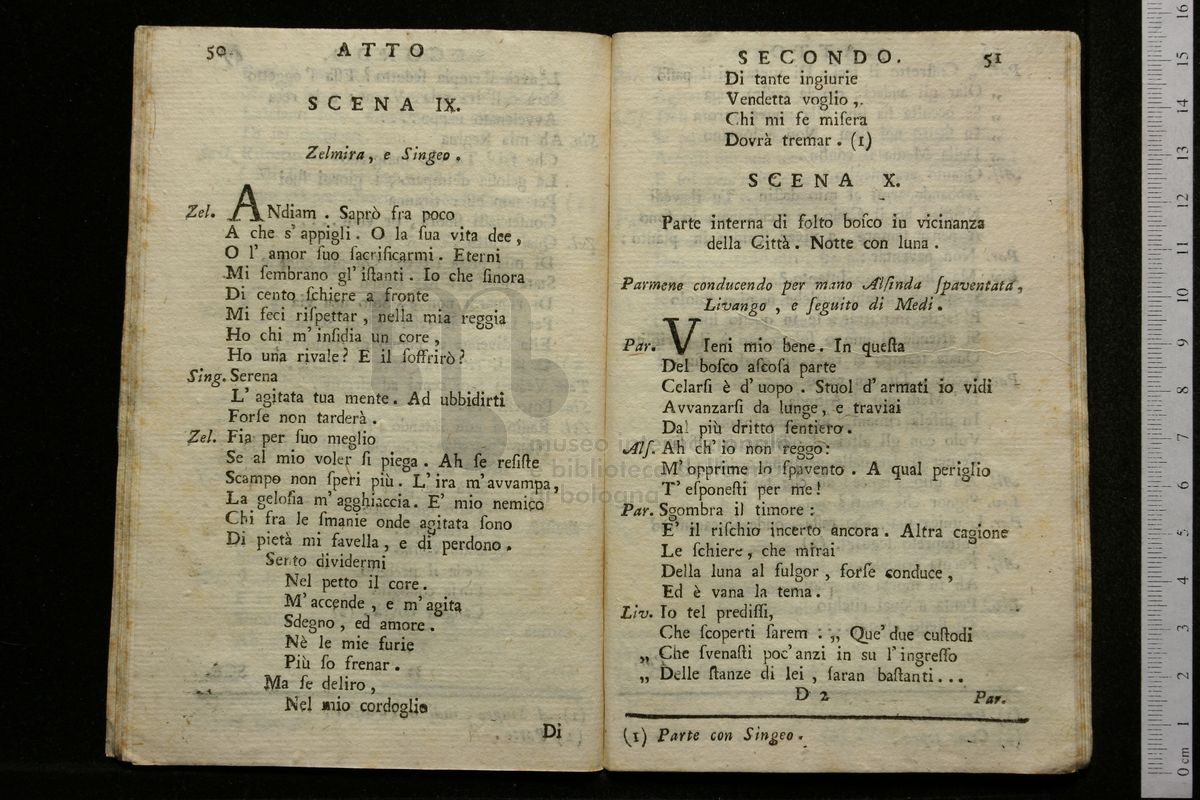 50 ATTO
SCENA IX.
Zelmira, e Singeo.
Zel. ANdiam. Saprò fra poco
A che s'appigli. O la ſua vita dee,
O l'amor ſuo ſacrificarmi. Eterni
Mi ſembrano gl'iſtanti. Io che ſinora
Di cento ſchiere a fronte
Mi feci riſpettar, nella mia reggia
Ho chi m'inſidia un core,
Ho una rivale? E il ſoffrirò?
Sing. Serena
L'agitata tua mente. Ad ubbidirti
Forſe non tarderà.
Zel. Fia per ſuo meglio
Se al mio voler ſi piega. Ah ſe reſiſte
Scampo non ſperi più. L'ira m'avvampa,
La geloſia m'agghiaccia. E' mio nemico
Chi fra le ſmanie onde agitata ſono
Di pietà mi favella, e di perdono.
Sento dividermi
Nel petto il core.
M'accende, e m'agita
Sdegno, ed amore.
Nè le mie furie
Più ſo frenar.
Ma ſe deliro,
Nel mio cordoglio
Di
SECONDO. 51
Di tante ingiurie
Vendetta voglio,
Chi mi fe miſera
Dovrà tremar. (1)
SCENA X.
Parte interna di folto boſco in vicinanza
della Città. Notte con luna.
Parmene conducendo per mano Alſinda ſpaventata,
Livango, e ſeguito di Medi.
Par. VIeni mio bene. In queſta
Del boſco aſcoſa parte
Celarſi è d'uopo. Stuol d'armati io vidi
Avvanzarſi da lunge, e traviai
Dal più dritto ſentiero.
Alſ. Ah ch'io non reggo:
M'opprime lo ſpavento. A qual periglio
T'eſponeſti per me!
Par. Sgombra il timore:
E' il riſchio incerto ancora. Altra cagione
Le ſchiere, che mirai
Della luna al fulgor, forſe conduce,
Ed è vana la tema.
Liv. Io tel prediſſi,
Che ſcoperti ſarem: „ Que' due cuſtodi
„ Che ſvenaſti poc'anzi in su l'ingreſſo
„ Delle ſtanze di lei, ſaran baſtanti...
D 2 Par.
(1) Parte con Singeo.
museo internazionale
biblioteca della musica
di bologna